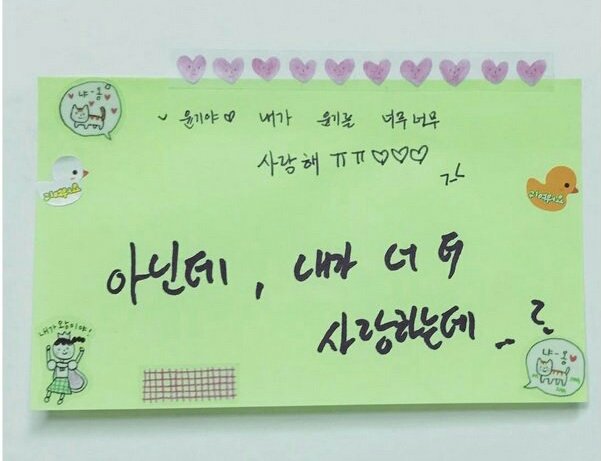 냐-옹
~ 윤기야♡ 내가 윤기를 너무너무
사랑해 ㅠㅠ♡♡♡
귀여워요
귀여워요
아닌데, 내가 너 더
사랑하는데
내가 왕이야!
냐-옹